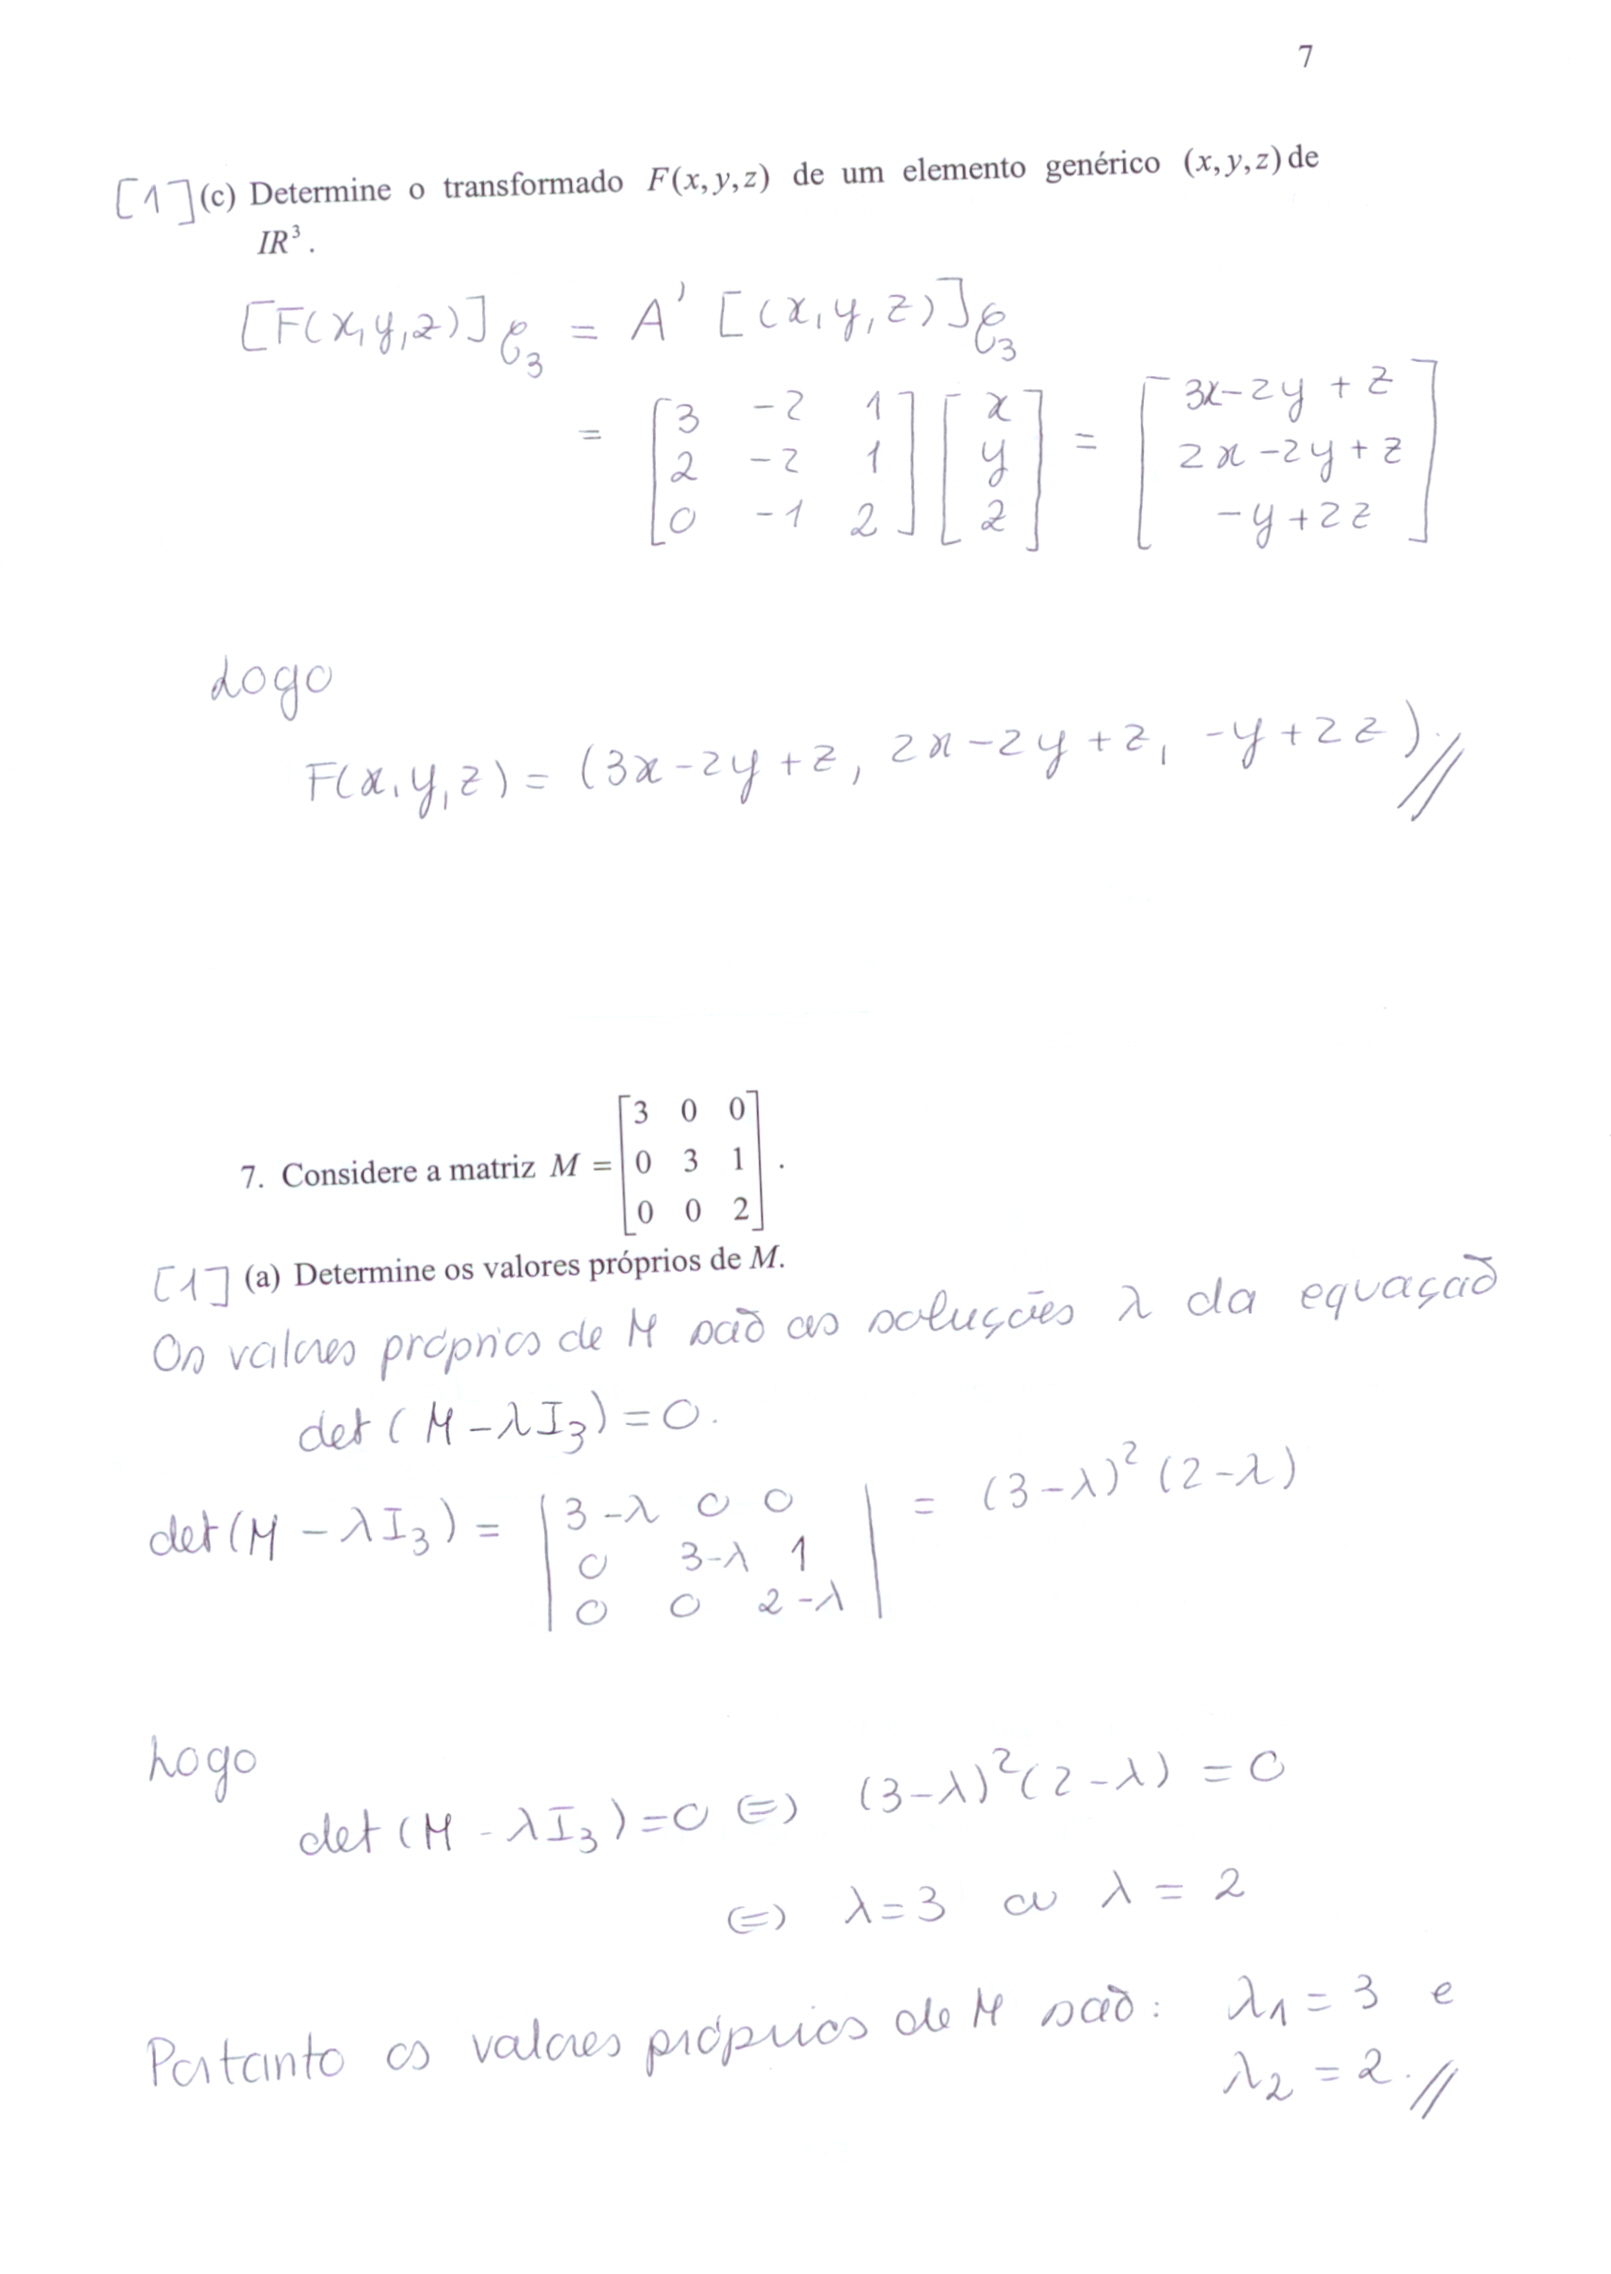 7
[1] (c) Determine o transformado F(x, y, z) de um elemento genérico (x, y, z) de
IR³ .
[F(x,y,z)]𝒞₃ = A' [(x,y,z)]𝒞₃
= [3 -2 1; 2 -2 1; 0 -1 2] [x; y; z] = [3x-2y+z; 2x-2y+z; -y+2z]
Logo
F(x,y,z) = (3x-2y+z, 2x-2y+z, -y+2z).//
7. Considere a matriz M = [3 0 0; 0 3 1; 0 0 2] .
[1] (a) Determine os valores próprios de M.
Os valores próprios de M são as soluções λ da equação
det(M-λI₃)=0.
det(M-λI₃) = |3-λ 0 0; 0 3-λ 1; 0 0 2-λ| = (3-λ)²(2-λ)
Logo
det(M-λI₃)=0 ⇔ (3-λ)²(2-λ) = 0
⇔ λ=3 ou λ = 2
Portanto os valores próprios de M são: λ₁ = 3 e
λ₂ = 2.//